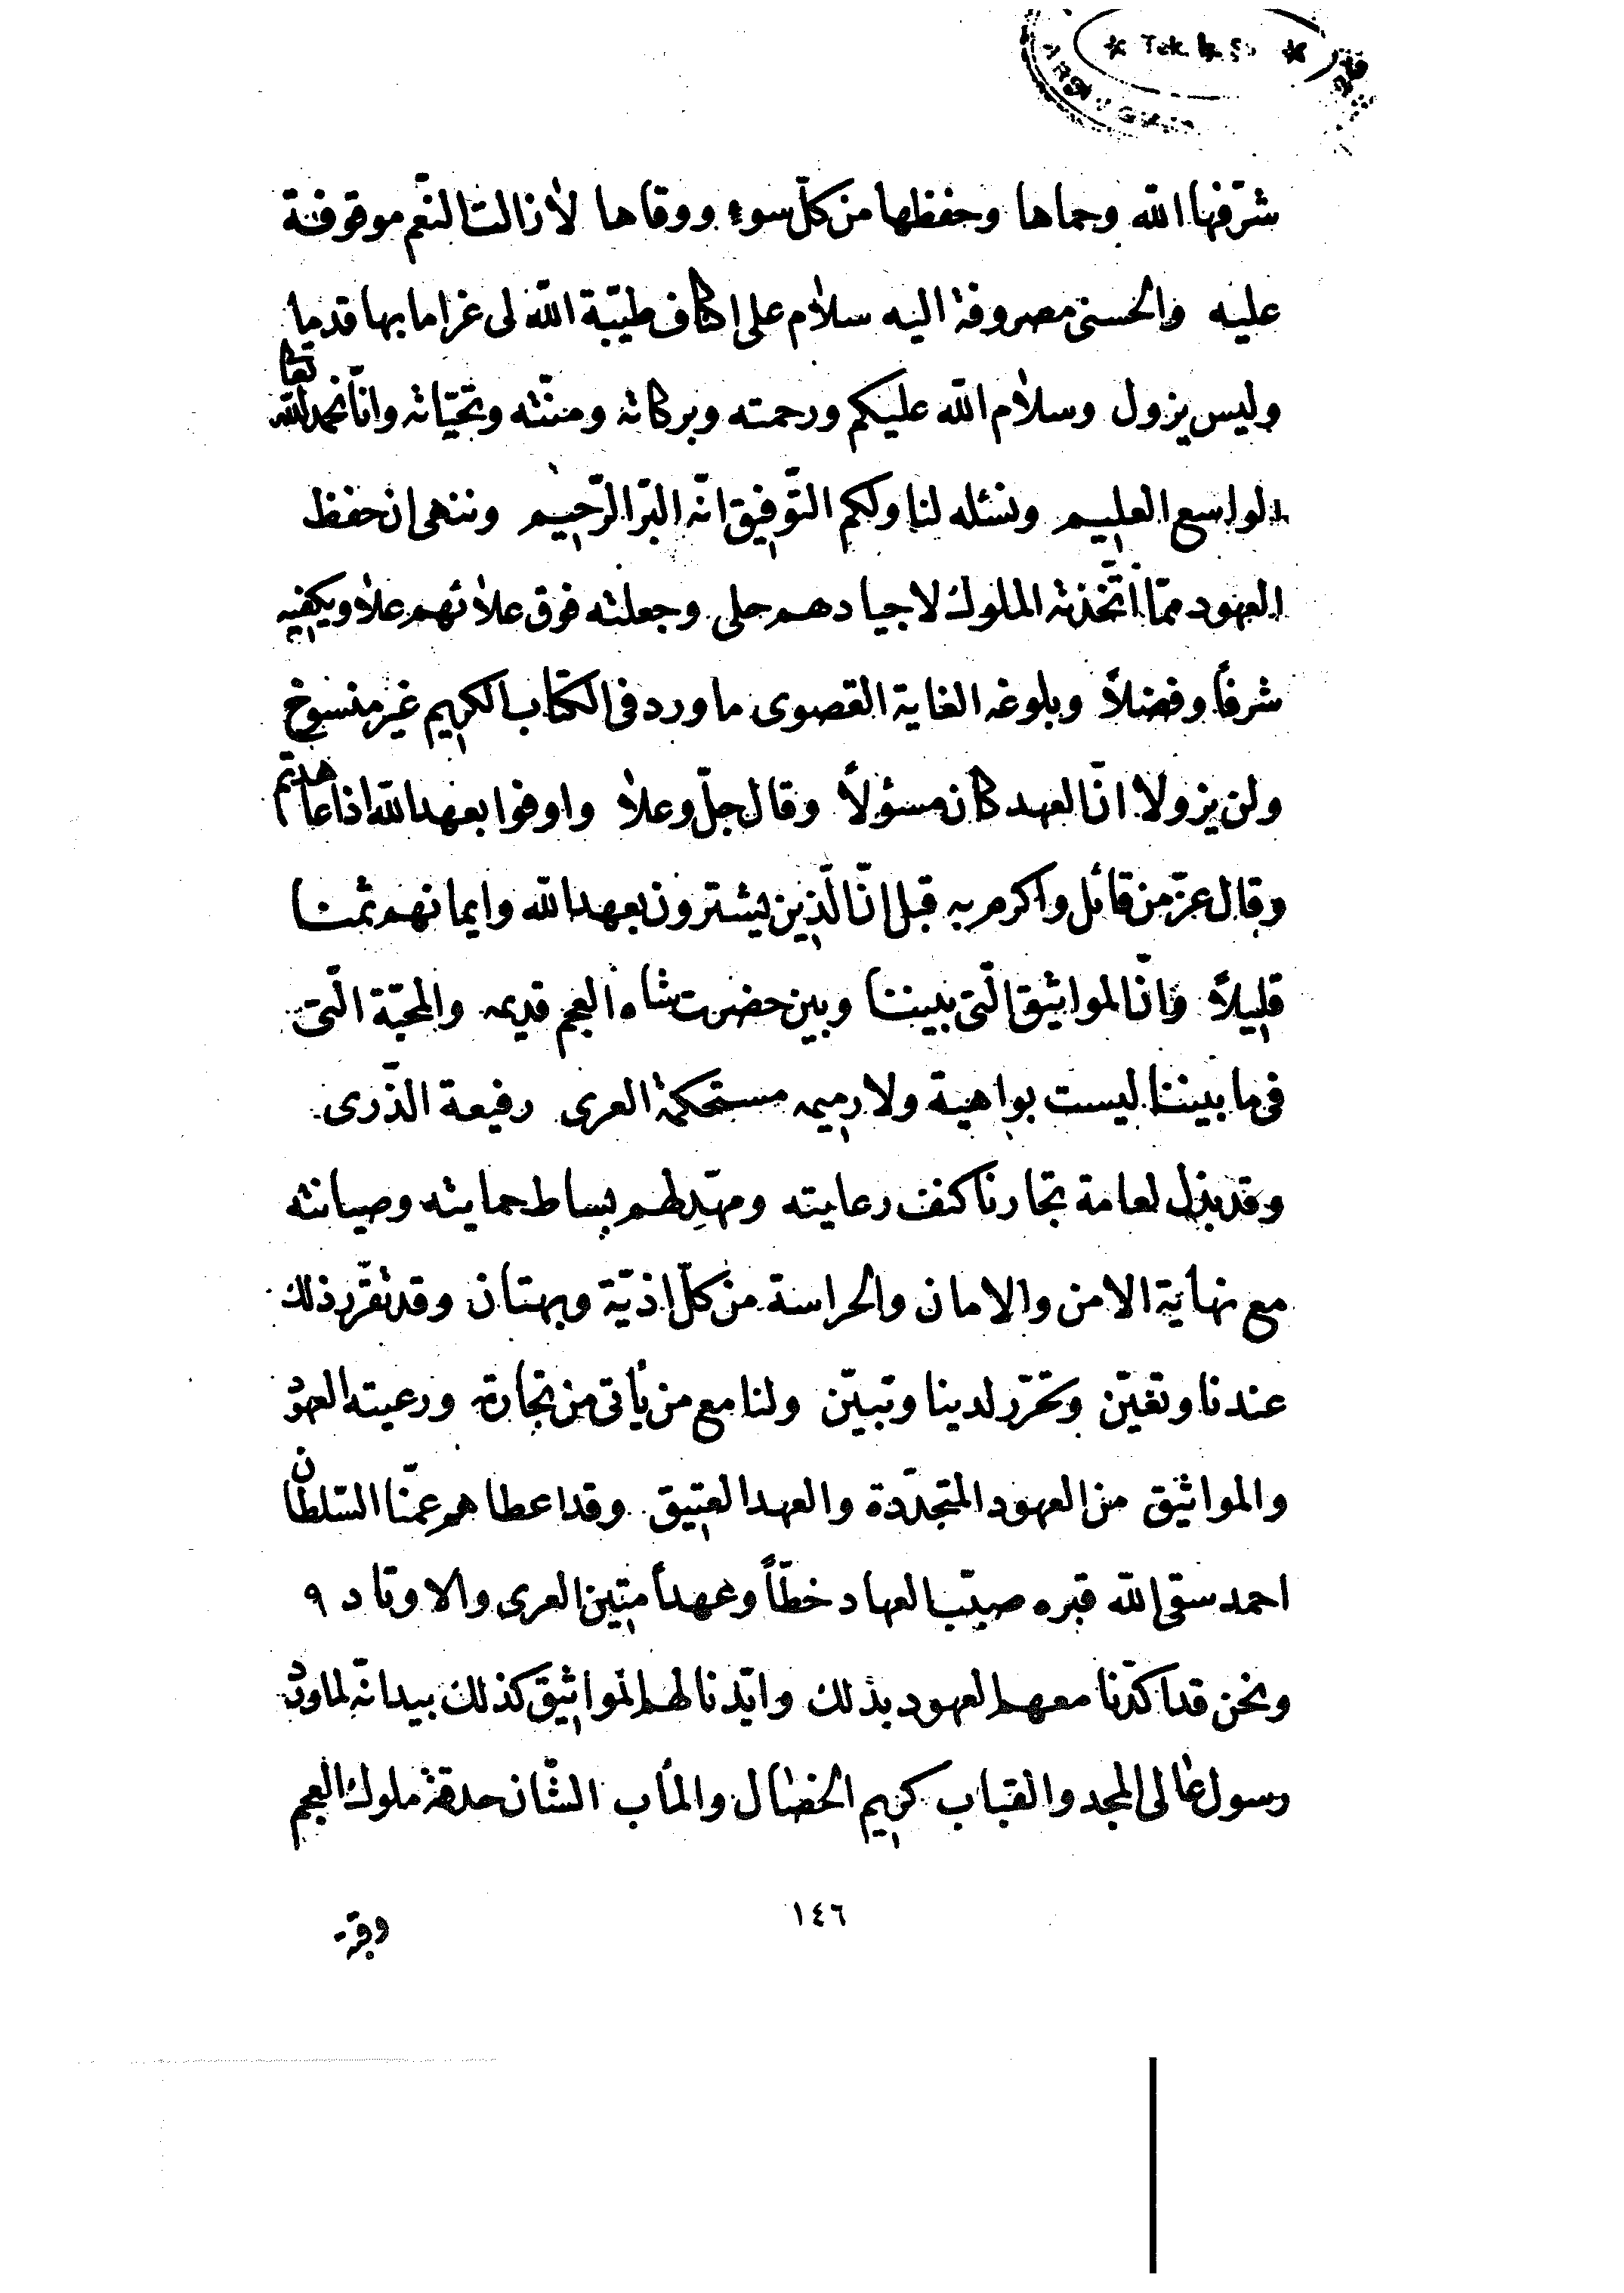 Tek. İş. Şb
شرّفها الله وحماها وحفظها من كلّ سوء ووقاها لا زالت النّعم موقوفة
عليه والحسنى مصروفة اليه سلام على اكناف طيّبة الله لى غراما بها قديما
وليس يزول وسلام الله عليكم ورحمته وبركاته ومننّه وتحيّاته وانّا نحمد الله تعا
الواسع العليم ونسئله لنا ولكم التّوفيق انّه البرّ الرّحيم وننهى ان حفظ
العهود ممّا اتّخذته الملوك لاجيادهم حلى وجعلته فوق علائهم علا ويكفيه
شرفاً وفضلاً وبلوغه الغاية القصوى ما ورد فى الكتاب الكريم غير منسوخ
ولن يزولا انّ العهد كان مسؤلاً وقال جلّ وعلا واوفوا بعهد الله اذا عاهدتم
وقال عزّ من قائل واكرم به قبل انّ الّذين يشترون بعهد الله وايمانهم ثمنا
قليلاً وانّ المواثيق الّتى بيننا وبين حضرت شاه العجم قديمه والمحبّة الّتى
فى ما بيننا ليست بواهية ولا رميمه مستحكمة العرى رفيعة الذّرى
وقد بذل لعامة تجارنا كنف رعايته ومهّد لهم بساط حمايته وصيانته
مع نهاية الامن والامان والحراسة من كلّ اذيّة وبهتان وقد تقرّر ذلك
عندنا وتعيّن وتحرّر لدينا وتبيّن ولنا مع من يأتى من تجارته ورعيته العهود
والمواثيق من العهود المتجدّدة والعهد العتيق وقد اعطاهم عمّنا السّلطان
احمد سقى الله قبره صيّب العهاد خطّاً وعهداً متين العرى والاوتاد ٩
ونحن قد اكدّنا معهم العهود بذلك وايّدنا لهم المواثيق كذلك بيد انّه لما ورد
رسول عالى المجد والقباب كريم الخصال والمأب الشّان حدقة ملوك العجم
١٤٦
وقر